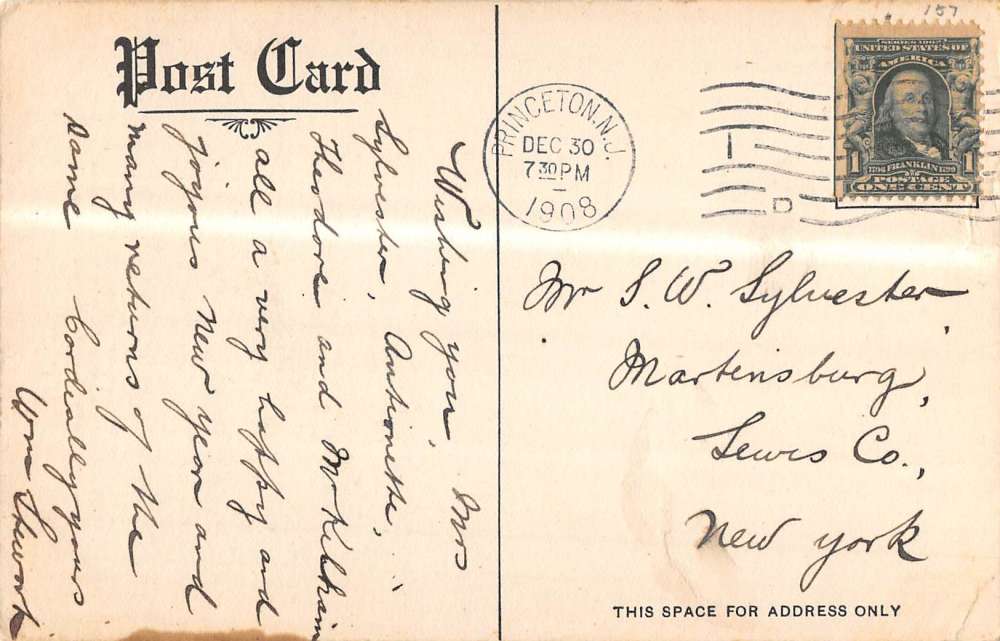 157
Post Card
PRINCETON, N.J.
DEC 30
7 30 PM
1908
D
SERIES 1902
UNITED STATES OF
AMERICA
1 1
1706 FRANKLIN 1790
POSTAGE
ONE CENT
Wishing you, Mrs
Sylvester, Antionette,
Theodore and Mr
all a very happy and
joyous New year and
many returns of the
same
Cordially yours
Wm
Mr S. W. Sylvester,
Martinsburg,
Lewis Co.,
New York
THIS SPACE FOR ADDRESS ONLY